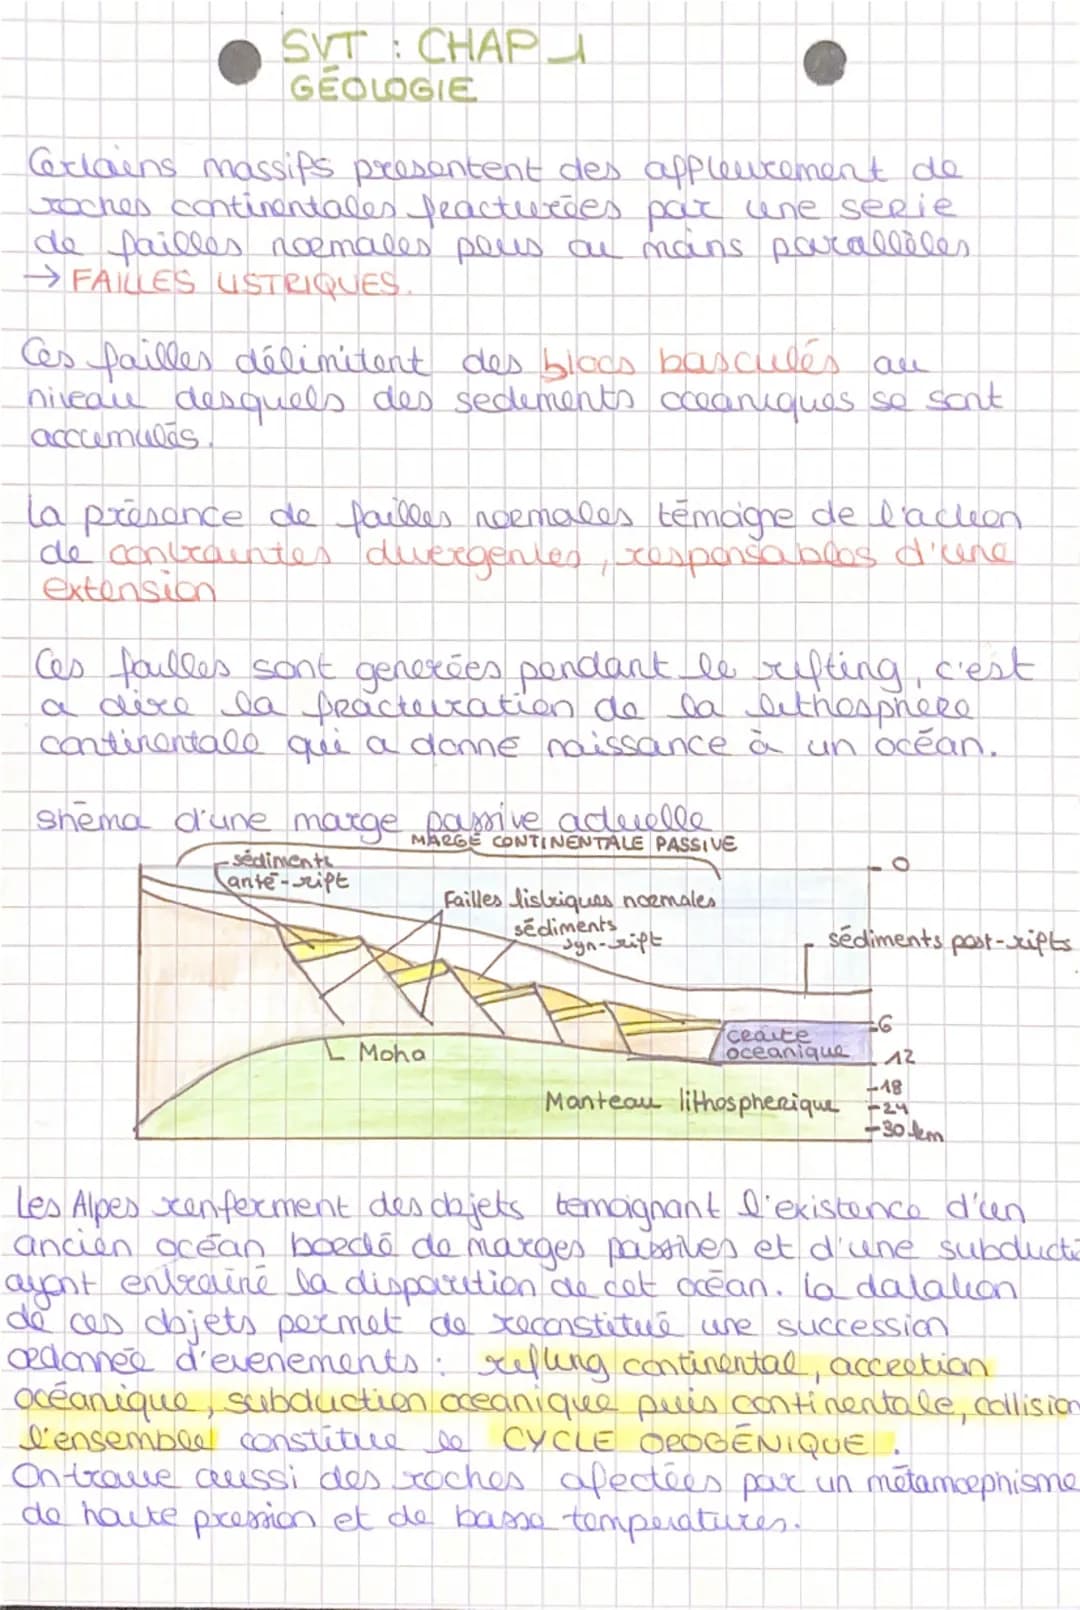 SVT : CHAP 1
GÉOLOGIE
Certains massifs presentent des affleurement de
roches continentales fracturées par une serie
de failles normales plus ou moins parallèles
→ FAILLES LISTRIQUES.
Ces failles délimitent des blocs basculés au
niveau desquels des sediments oceaniques se sont
accumulés.
La présence de failles normales témoigne de l'action
de contraintes divergentes, responsables d'une
extension
Ces failles sont generées pendant le rifting, c'est
a dire la fracturation de la lithosphere
continentale qui a donné naissance à un océan.
shéma d'une marge passive actuelle
MARGE CONTINENTALE PASSIVE
sédiments
anté-rift
Failles listriques normales
sédiments
syn-rift
sédiments post-rifts
0
6
12
18
24
30 km
croûte
océanique
Moho
Manteau lithospherique
Les Alpes renferment des objets temoignant l'existence d'un
ancien océan bordé de marges passives et d'une subducti
ayant entrainé la disparition de cet océan. La datation
de ces objets permet de reconstitué une succession
ordonnée d'evenements : rifting continental, accretion
océanique, subduction oceanique puis continentale, collision
l'ensemble constitue le CYCLE OROGÉNIQUE.
On trouve aussi des roches afectées par un métamorphisme
de haute pression et de basse temperatures.